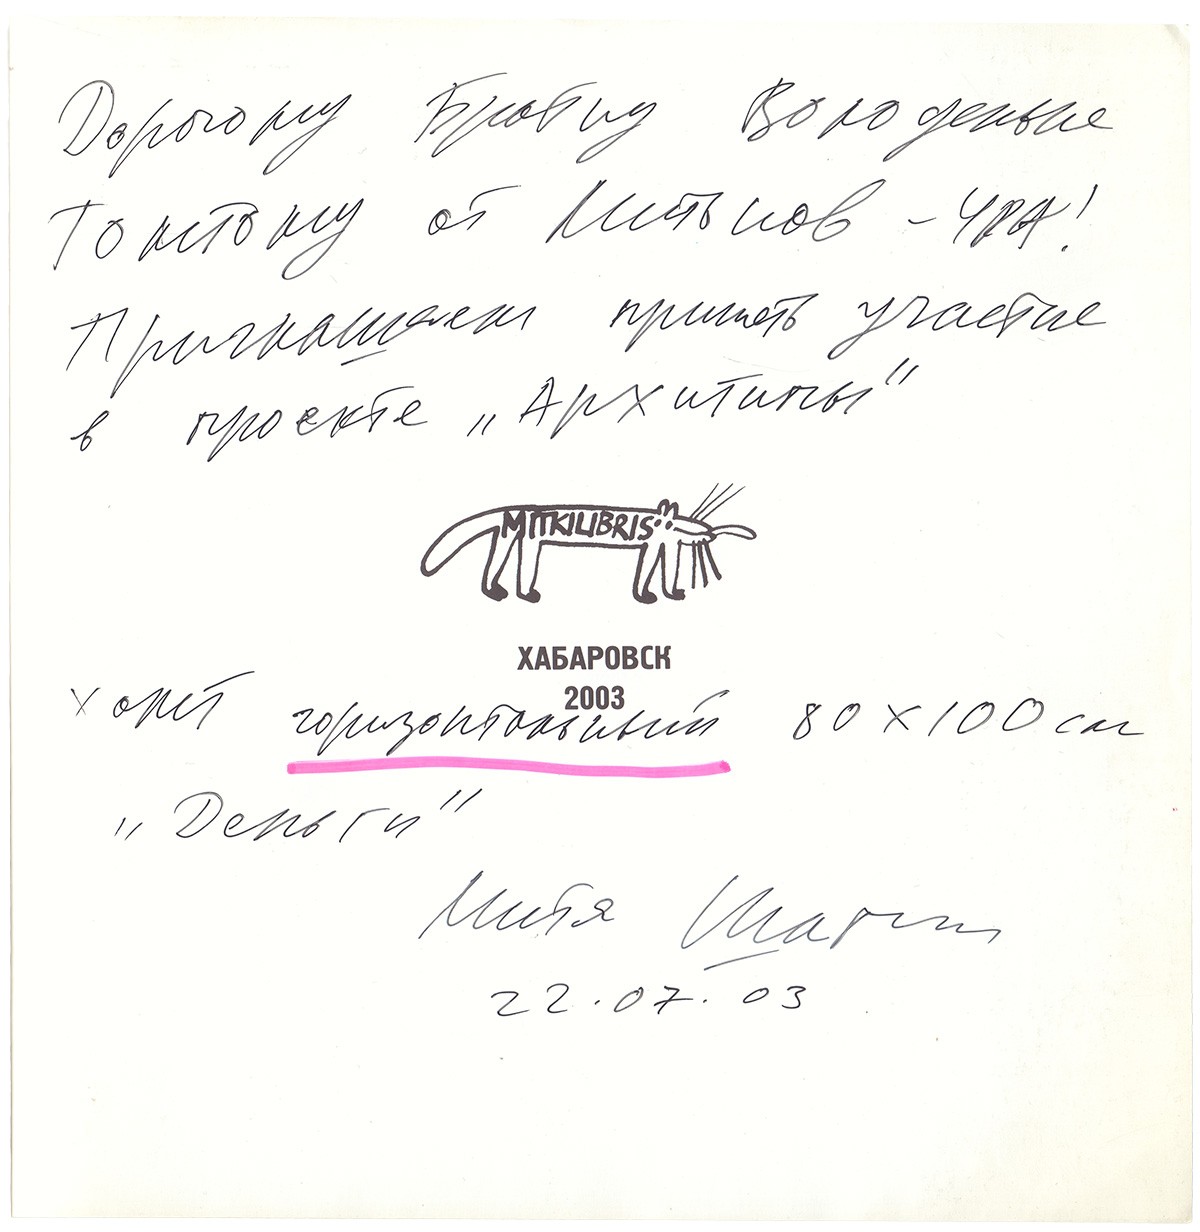 Дорогому Братку Володеньке
Толстому от Митьков – УРА!
Приглашаем принять участие
в проекте „Архитипы"
MITKILIBRIS
ХАБАРОВСК
2003
холст горизонтальный 80 х 100 см
„Деньги"
Митя Шагин
22.07.03